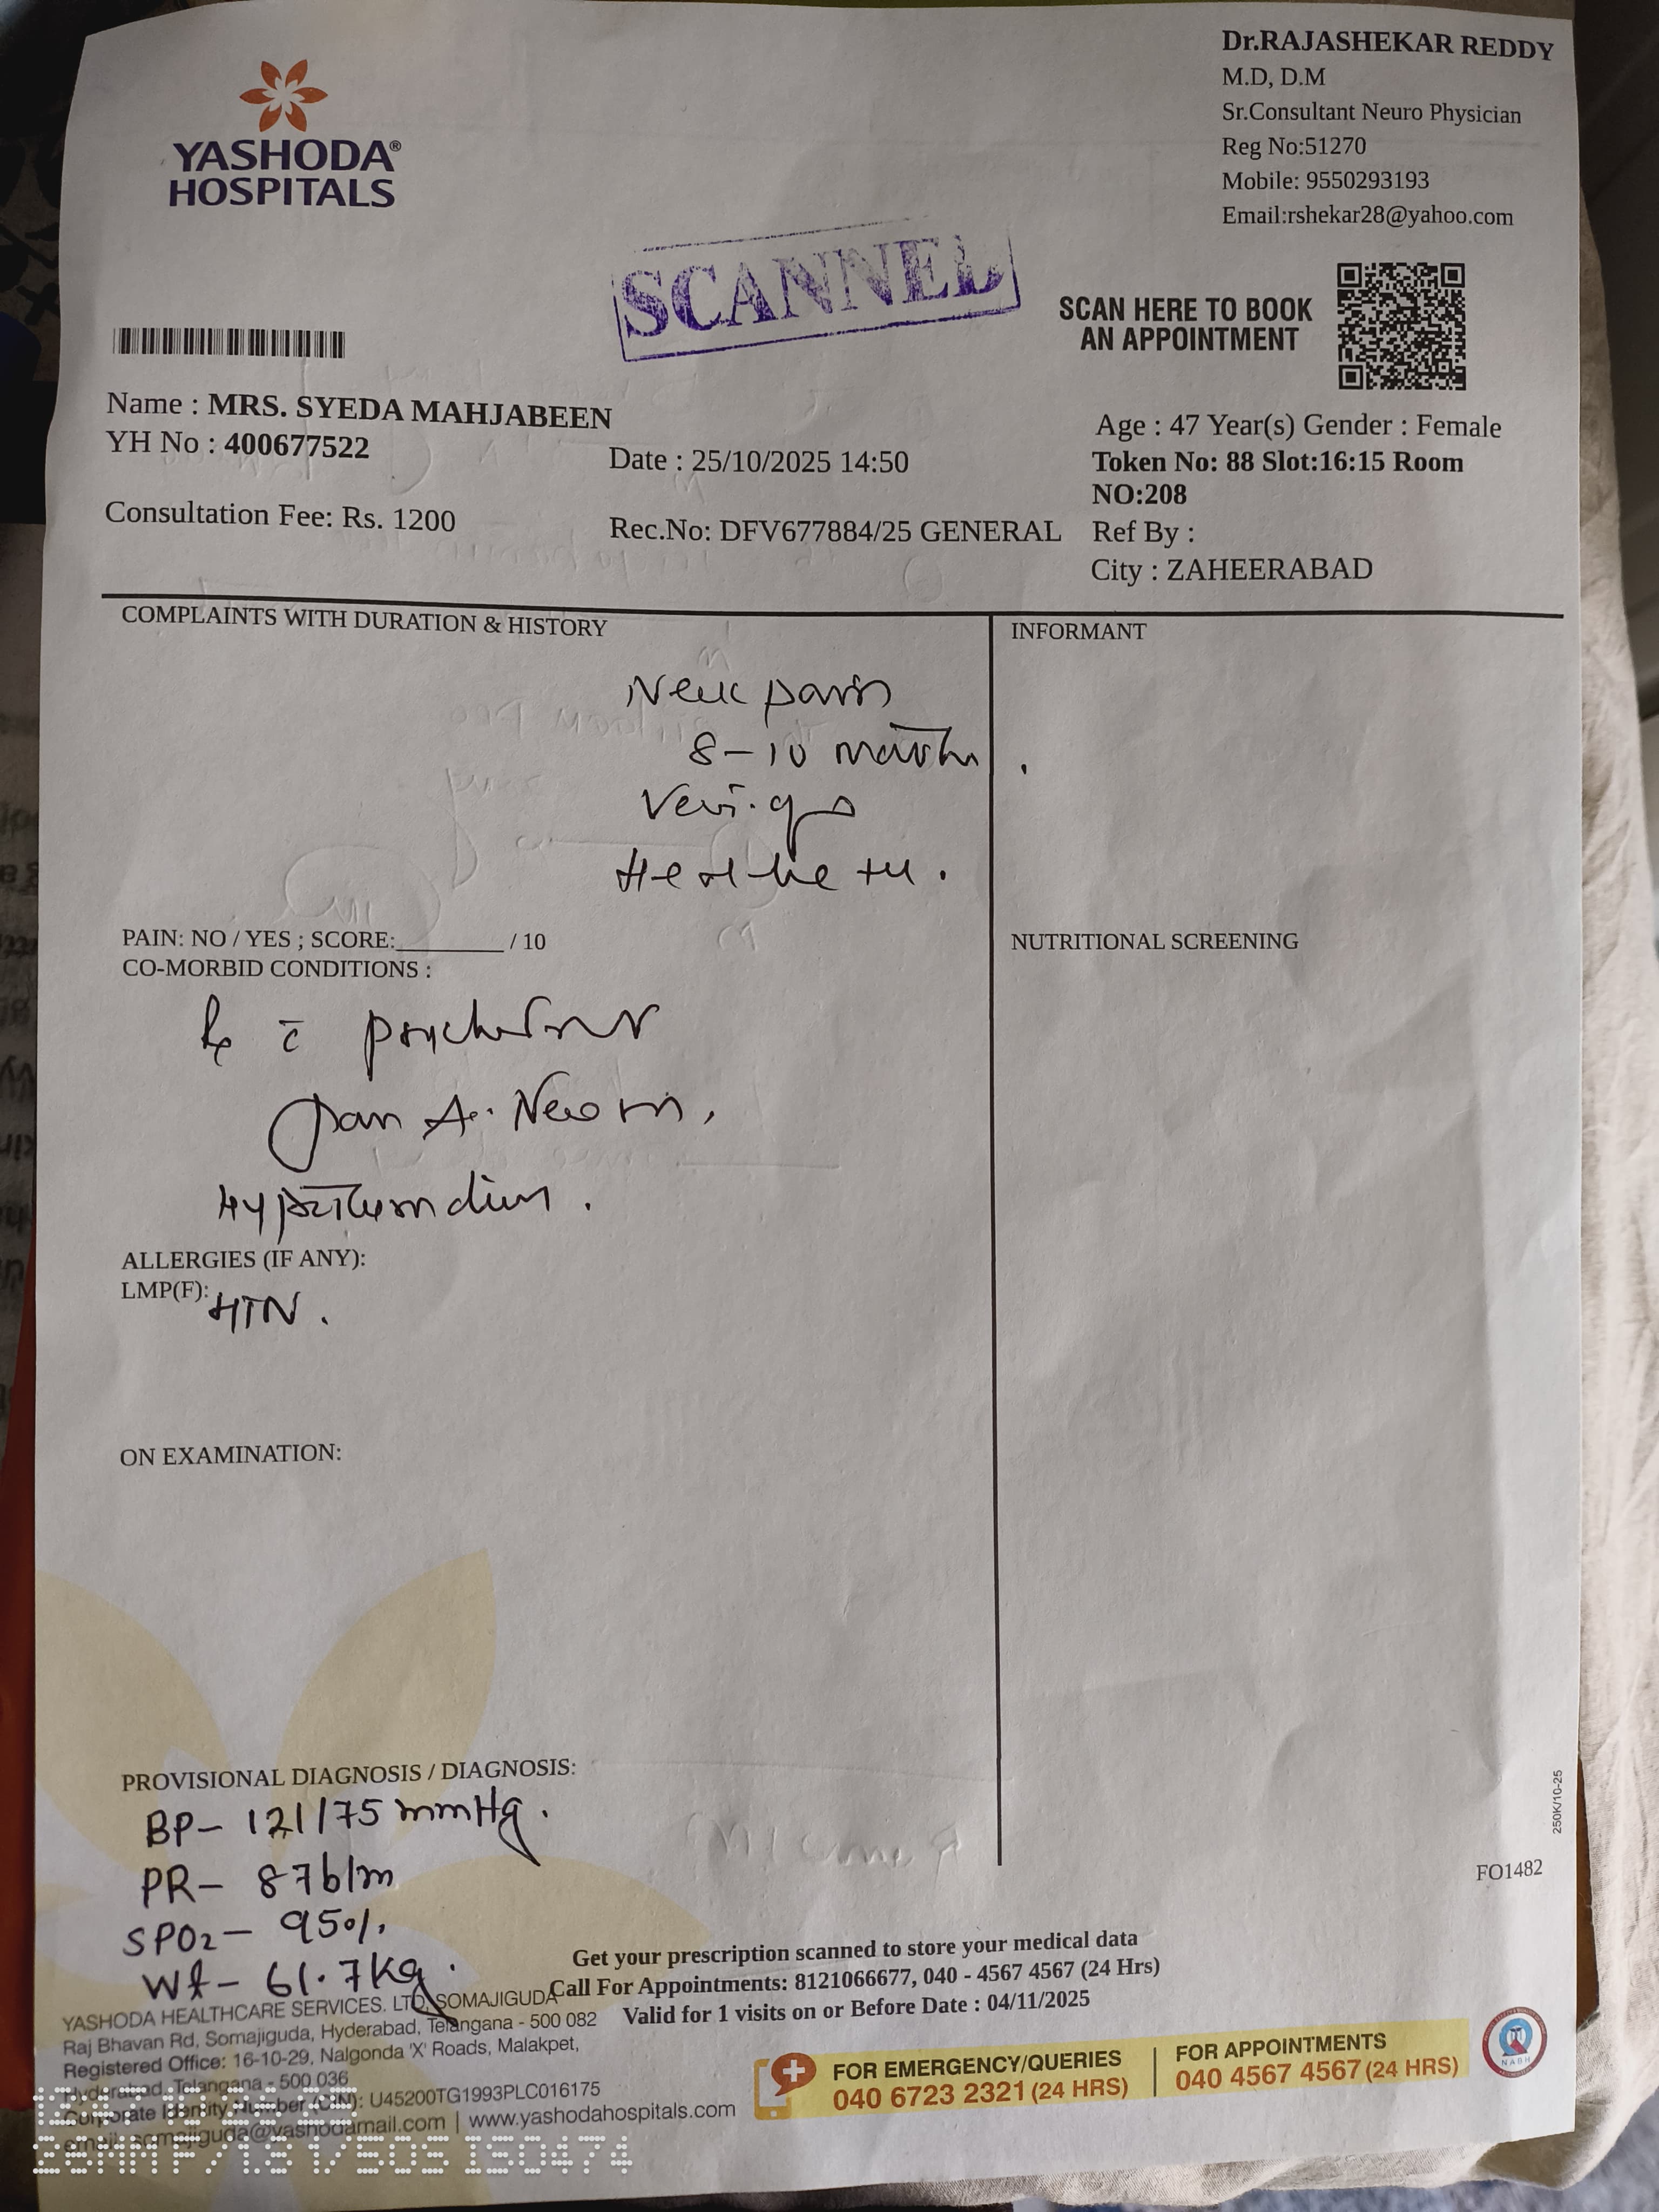 Dr.RAJASHEKAR REDDY
M.D, D.M
Sr.Consultant Neuro Physician
Reg No:51270
Mobile: 9550293193
Email:rshekar28@yahoo.com
YASHODA®
HOSPITALS
SCANNED
SCAN HERE TO BOOK
AN APPOINTMENT
Name : MRS. SYEDA MAHJABEEN
YH No : 400677522
Date : 25/10/2025 14:50
Age : 47 Year(s) Gender : Female
Token No: 88 Slot:16:15 Room
NO:208
Consultation Fee: Rs. 1200
Rec.No: DFV677884/25 GENERAL
Ref By :
City : ZAHEERABAD
COMPLAINTS WITH DURATION & HISTORY
INFORMANT
Neck pain
8-10 months
Vertigo
PAIN: NO / YES ; SCORE:________ / 10
NUTRITIONAL SCREENING
CO-MORBID CONDITIONS :
ALLERGIES (IF ANY):
LMP(F):
HTN.
ON EXAMINATION:
PROVISIONAL DIAGNOSIS / DIAGNOSIS:
BP- 121/75 mmHg.
PR- 87b/m
SPO2- 95%.
Wt- 61.7kg.
250K/10-25
FO1482
Get your prescription scanned to store your medical data
Call For Appointments: 8121066677, 040 - 4567 4567 (24 Hrs)
Valid for 1 visits on or Before Date : 04/11/2025
YASHODA HEALTHCARE SERVICES. LTD, SOMAJIGUDA
Raj Bhavan Rd, Somajiguda, Hyderabad, Telangana - 500 082
Registered Office: 16-10-29, Nalgonda 'X' Roads, Malakpet,
Hyderabad, Telangana - 500 036
Corporate Identity Number (CIN): U45200TG1993PLC016175
email: somajiguda@yashodamail.com | www.yashodahospitals.com
FOR EMERGENCY/QUERIES
040 6723 2321 (24 HRS)
FOR APPOINTMENTS
040 4567 4567 (24 HRS)
NABH
26MM F/1.8 1/50S ISO474